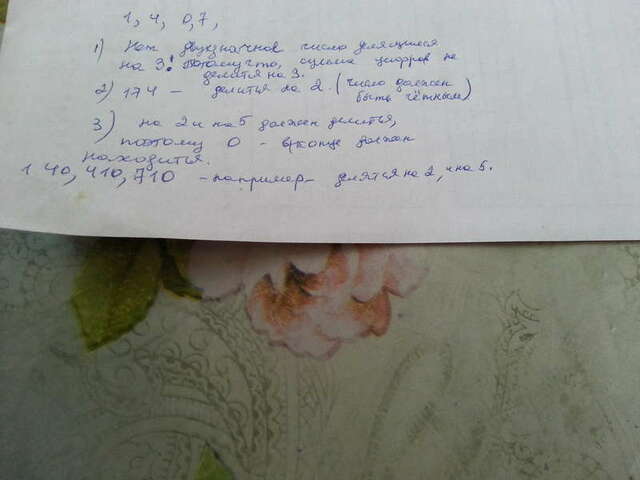 1, 4, 0,7,
1) Нет двухзначное число делящиеся
на 3! Потому что, сумма цифров не
делится на 3.
2) 174 - делиться на 2. (число должен
быть чётным)
3) на 2 и на 5 должен делиться,
поэтому 0 - в конце должен
находится.
140, 410, 710 - например - делятся на 2, и на 5.